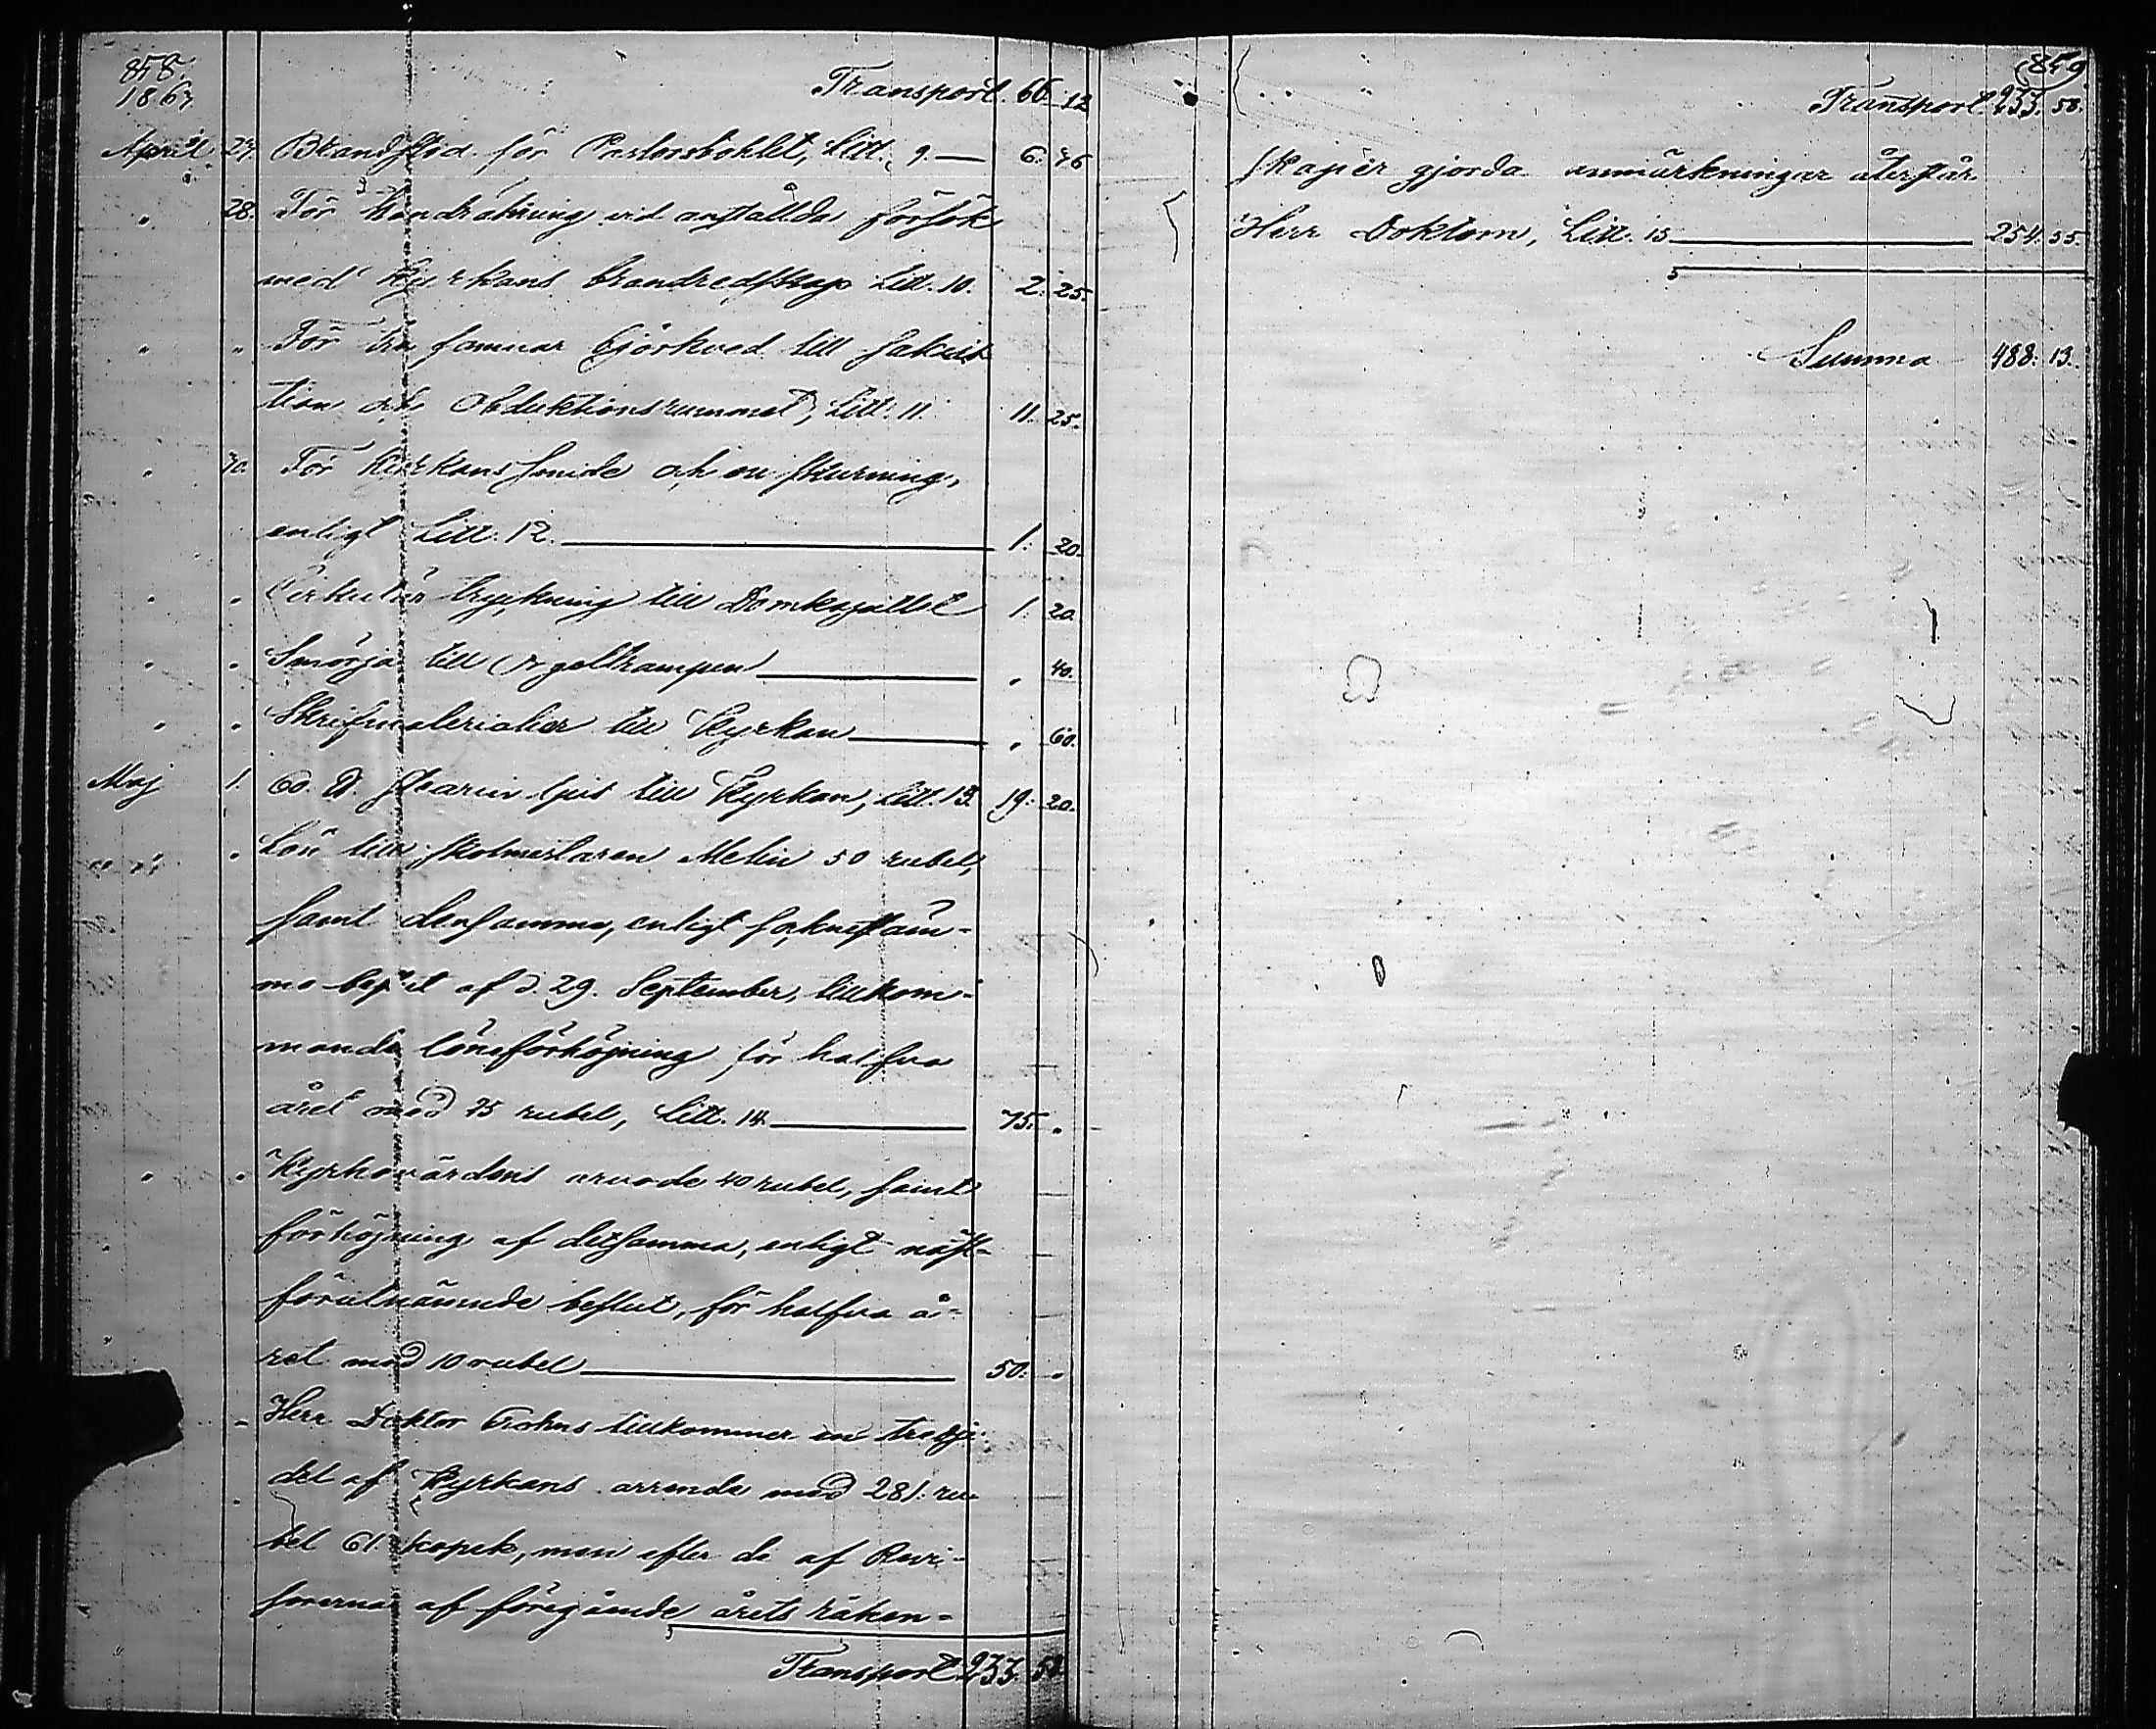 858.
1867
Transport. 66. 12
April. 27. Brandstod för Pastorsbohlet, Litt. 9. — 6. 46
" 28. För Handräkning vid anstallda försök
med Kyrkans brandredskap Litt. 10. 2. 25.
" " För tre famnar björkved till sakris
tian och Obduktionsrummet, Litt. 11. 11. 25.
" 30. För Kyrkans smide och en skurning,
enligt Litt. 12. — 1. 20.
" " Cirkulär tryckning till Domkapitlet 1. 20.
" " Smörja till Orgeltrampen — " 40.
" " Skrifmaterialier till Kyrkan — " 60.
Maj 1. 60 ℔ stearin ljus till Kyrkan, Litt. 13. 19. 20.
" " Lön till skolmästaren Melin 50 rubel,
samt densamma, enligt sockneståm-
mo beslut af d. 29. September, tillkom-
mande löneförhöjning för halfva
året med 25 rubel, Litt. 14. — 75. "
" " Kyrkovärdens arvode 40 rubel, samt
förhöjning af detsamma, enligt näst-
förutnämnde beslut, för halfva å-
ret med 10 rubel — 50. "
" Herr Doktor tillkommer en tredje
del af Kyrkans arrende med 281. ru
bel 61. kopek, men efter de af Revi-
sorerna af föregående årets räken-
Transport 233. 58.
859
Transport. 233. 58.
skaper gjorda anmärkningar återstår
Herr Doktorn, Litt. 15 — 254. 55.
Summa 488. 13.